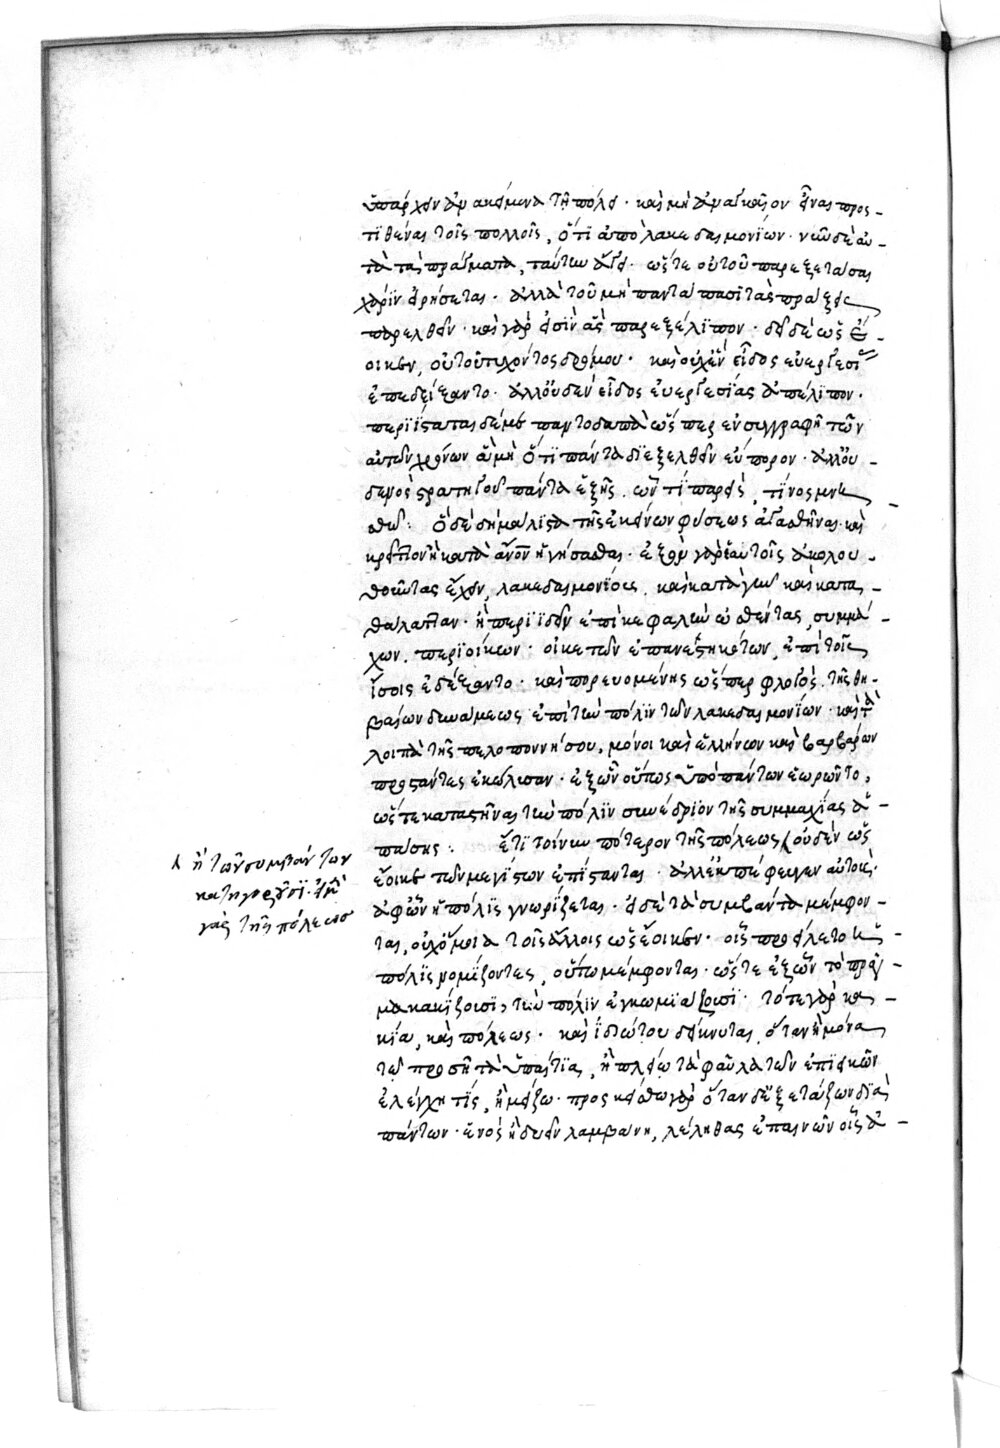 ὑπάρχειν ἀνακείμενα τῆ πόλει · καὶ μὴ ἀναγκαῖον εἶναι προσ-
τιθέναι τοῖς πολλοῖς, ὅτι ἀπὸ λακεδαιμονίων · νῦν δὲ αὐ-
τὰ τὰ πράγματα, ταύτην ἄγει · ὥστε οὐ τοῦ παρεξετάσαι
χάριν εἰρήσεται · ἀλλὰ τοῦ μὴ παντάπασι τὰς πράξεις
παρελθεῖν · καὶ γὰρ εἰσὶν ἃς παρεξέλιπον · δεῖ δὲ ὡς
ἔοικεν, οὐ τοῦ τυχόντος δρόμου · καὶ οὐχ ἓν εἶδος εὐεργεσίας
ἐπεδείξαντο · ἀλλ' οὐδὲν εἶδος εὐεργεσίας ἀπέλιπον ·
περιΐσταται δέ με παντοδαπὰ ὥσπερ ἐν συγγραφῆ τῶν
αὐτῶν χρόνων ἃ μὴ ὅτι πάντα διεξελθεῖν εὔπορον · ἀλλ' οὐ-
δενὸς στρατηγοῦ πάντα ἑξῆς. ὧν τί παρεὶς, τίνος μνη
σθῶ : ὃ δὲ δὴ μάλιστα τῆς ἐκείνων φύσεως ἄγασθῆναι καὶ
κρεῖττον ἢ κατὰ ἄνον ἡγήσασθαι · ἐξὸν γὰρ ἑαυτοῖς ἀκολου-
θοῦντας ἔχειν, λακεδαιμονίους, καὶ κατὰ γῆν καὶ κατα-
θάλατταν · ἢ περιϊδεῖν ἐπὶ κεφαλὴν ὠσθέντας, συμμά-
χων. περιοίκων · οἰκετῶν ἐπανεστηκότων, ἐπὶ τοῖς
ἴσοις ἐδέξαντο · καὶ πορευομένης ὥσπερ φλογὸς, τῆς θη-
βαίων δυνάμεως ἐπὶ τὴν πόλιν τῶν λακεδαιμονίων · καὶ τὰ
λοιπὰ τῆς πελοποννήσου, μόνοι καὶ ἑλλήνων καὶ βαρβάρων
προστάντες ἐκώλυσαν · ἐξ ὧν οὕπως ὑπὸ πάντων ἑωρῶντο,
ὥστε καταστῆναι τὴν πόλιν συνέδριον τῆς συμμαχίας ἁ-
πάσης : ἔτι τοίνυν πότερον τῆς πόλεως οὐδὲν ὡς
ἔοικε τῶν μεγίστων ἐπίστανται · ἀλλ' ἐκπέφευγεν αὐτοὺς ·
ἀφ' ὧν ἡ πόλις γνωρίζεται · εἰ δὲ τὰ συμβάντα μέμφον-
ται, οὐχ ὅμοια τοῖς ἄλλοις ὡς ἔοικεν · οἷς προείλετο ἡ
πόλις νομίζοντες, οὕτω μέμφονται · ὥστε ἐξ ὧν τὸ πρᾶγ-
μα κακίζουσι, τὴν πόλιν ἐγκωμιάζουσι · τότε γὰρ κα-
κία, καὶ πόλεως · καὶ ἰδιώτου δείκνυται, ὅταν ἢ μόνα
τῳ προσῆ τὰ ὑπαίτια, ἢ πλείω τὰ φαῦλα τῶν ἐπιεικῶν
ἐλέγχη τίς, ἢ μείζω · πρὸς κείσθω γὰρ ὅταν δὲ ἐξετάζων διὰ
πάντων · ἑνὸς ἢ δυεῖν λαμβάνη, λέληθας ἐπαινῶν οἷς ἀ-
ἢ τῶν συμβάντων
κατηγοροῦσι.
τῆς πόλεως